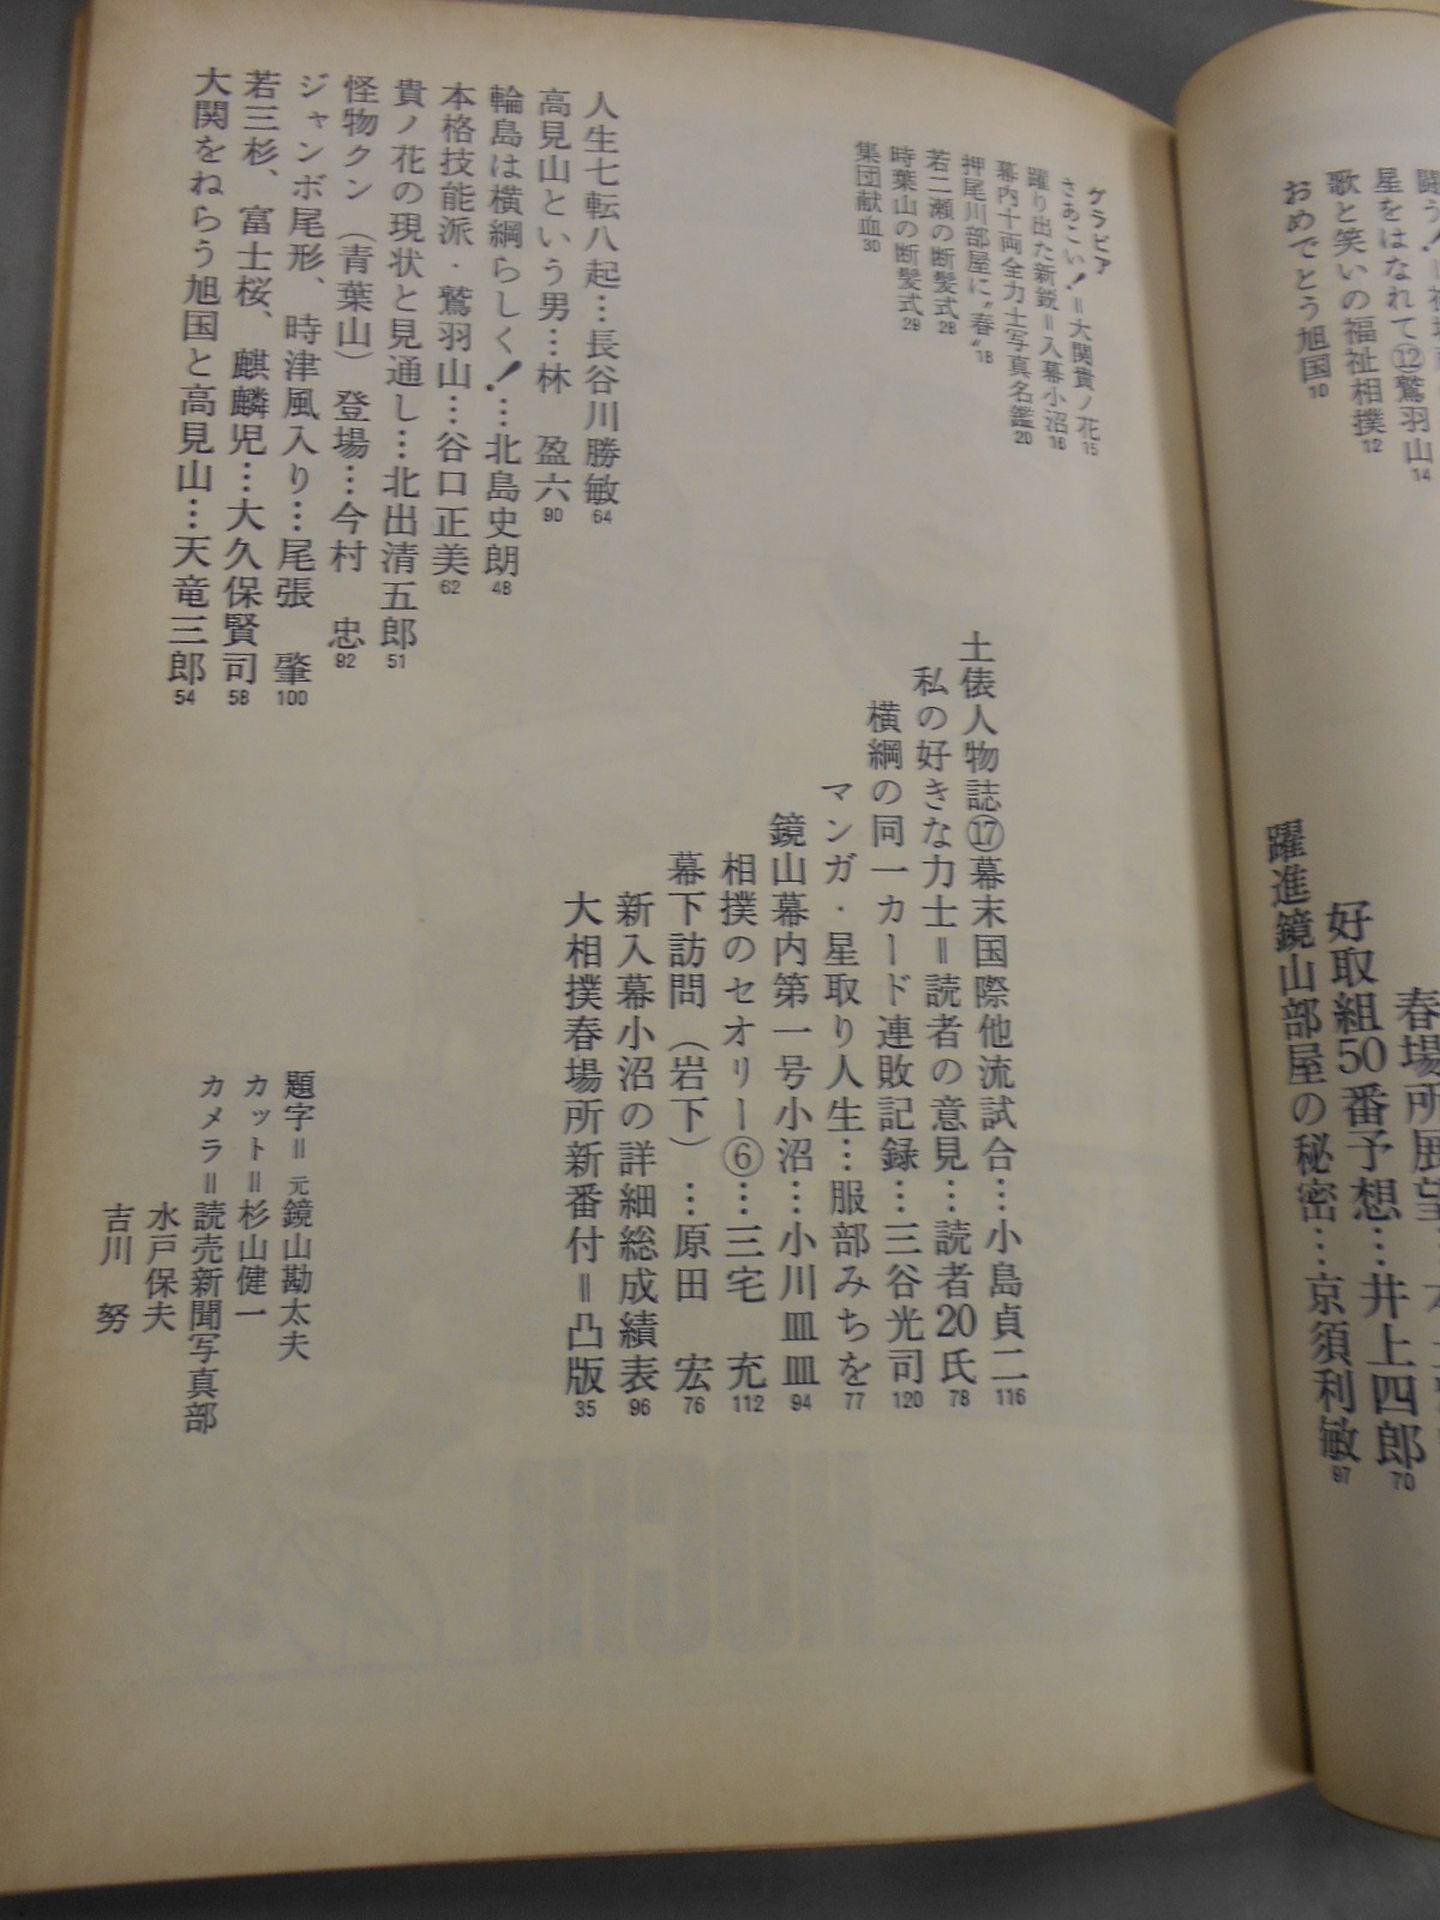 星をはなれて⑫鷲羽山14
歌と笑いの福祉相撲12
おめでとう旭国10
好取組50番予想…井上四郎70
躍進鏡山部屋の秘密…京須利敏97
グラビア
さあこい!=大関貴ノ花15
躍り出た新鋭=入幕小沼16
幕内十両全力士写真名鑑20
押尾川部屋に"春"18
若二瀬の断髪式28
時葉山の断髪式29
集団献血30
土俵人物誌⑰幕末国際他流試合…小島貞二116
私の好きな力士=読者の意見…読者20氏78
横綱の同一カード連敗記録…三谷光司120
マンガ・星取り人生…服部みちを77
鏡山幕内第一号小沼…小川皿皿94
相撲のセオリー⑥…三宅 充112
幕下訪問(岩下)…原田 宏76
新入幕小沼の詳細総成績表96
大相撲春場所新番付=凸版35
人生七転八起…長谷川勝敏64
高見山という男…林 盈六90
輪島は横綱らしく!…北島史朗48
本格技能派・鷲羽山…谷口正美62
貴ノ花の現状と見通し…北出清五郎51
怪物クン(青葉山)登場…今村 忠92
ジャンボ尾形、時津風入り…尾張 肇100
若三杉、富士桜、麒麟児…大久保賢司58
大関をねらう旭国と高見山…天竜三郎54
題字=元鏡山勘太夫
カット=杉山健一
カメラ=読売新聞写真部
水戸保夫
吉川 努